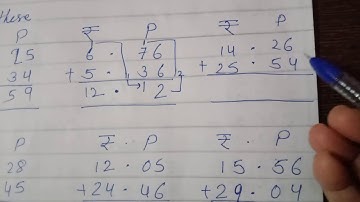 these
P ₹ P ₹ P
25 6 . 76 14 . 26
34 + 5 . 36 + 25 . 54
59 12 . 12
P ₹ . P ₹ . P
28 12 . 05 15 . 56
45 + 24 . 46 + 29 . 04